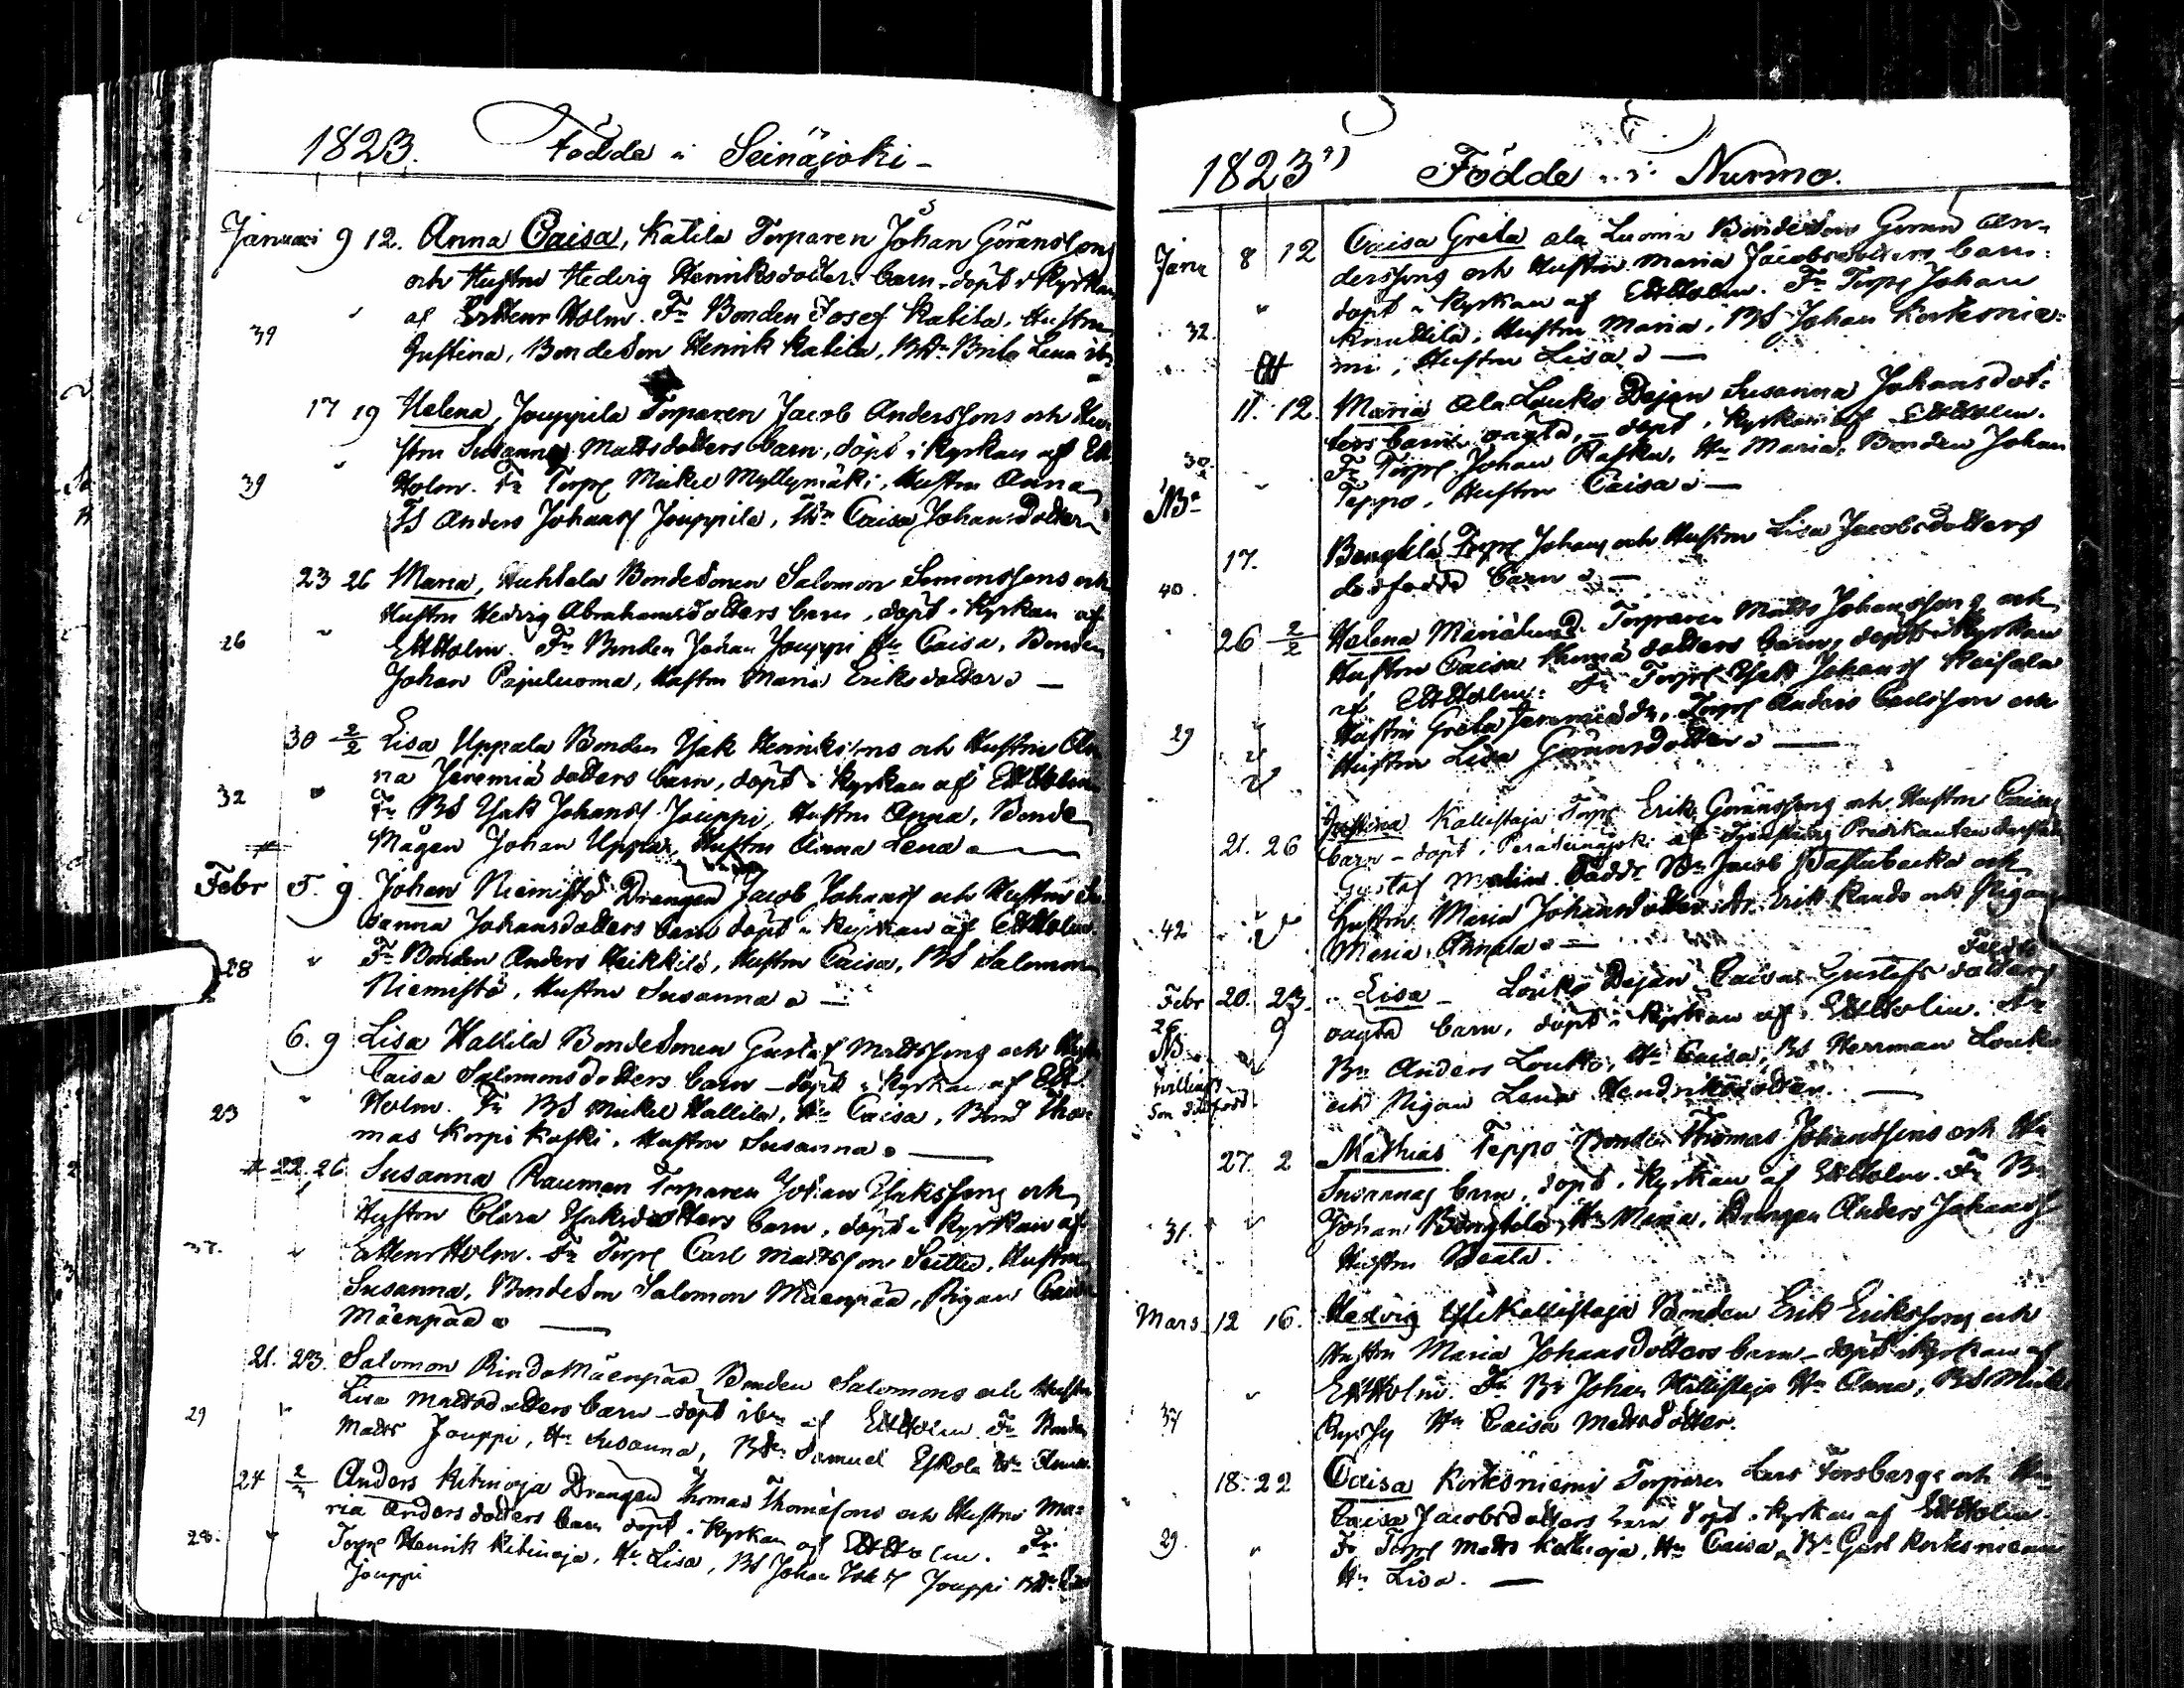 1823. Födde i Seinäjoki -
Januari 9 12. Anna Caisa, Katila Torparen Johan Göranssons
och Hustru Hedvig Henriksdotters barn. döpt i Kyrkan
af Ertkenr Holm. Fr Bonden Josef Katila, Hustru
39 Justina, BondeSon Henrik Katila, BDr Brita Lena ibm
17 19 Helena, Jouppila Torparen Jacob Anderssons och Hu
stru Susanna Mattsdotters barn, döpt i Kyrkan af Ett
39 Holm. Fr Torp Mickel Myllymäki, Hustru Anna,
TS Anders Johanss Jouppila, Caisa Johansdotter
23 26 Maria, Huhtala BondeSonen Salomon Simonssons och
Hustru Hedvig Abrahamsdotters barn, döpt i Kyrkan af
26 EttHolm. Fr Bonden Johan Jouppi Hu Caisa, Bonden
Johan Pajuluoma, Hustru Maria Eriksdotter
30 2/2 Lisa Uppala Bonden Isak Henrikssons och Hustru An
na Jeremiædotters barn, döpt i Kyrkan af EttHolm
32 Fr BS Isak Johanss Jouppi, Hustru Anna, Bonde
Mågen Johan Uppala, Hustru Anna Lena
Febr 5. 9. Johan Niemistö Drengen Jacob Johanss och Hustru Su
sanna Johansdotters barn döpt i Kyrkan af EttHolm.
28 Fr Bonden Anders Heikkilä, Hustru Caisa, BS Salomon
Niemistö, Hustru Susanna
6. 9 Lisa Hallila BondeSonen Gustaf Mattssons och
Caisa Salomonsdotters barn - döpt i Kyrkan af Ett
23 Holm. Fr BS Mickel Hallila, Hu Caisa, Bond Tho-
mas Korpikoski, Hustru Susanna
22. 26 Susanna Rauman Torparen Johan Isakssons och
Hustru Clara Isaksdotters barn, döpt i Kyrkan af
37. Holm. Fr Torp Carl Mattsson, Hustru
Susanna, BondeSon Salomon Mäenpää, Pigan Caisa
Mäenpää
21. 23. Salomon RindaMäenpää Bonden Salomons och Hustru
Lisa Mattsdotters barn - döpt ibm af EttHolm Fr Bonden
29 Matts Jouppi, Hu Susanna, Samuel Eskola Hu
24 2/ Anders Ritinoja Drengen Thomas Thomæsons och Hustru Ma-
ria Andersdotters barn döpt i Kyrkan af EttHolm. Fr
28. Torp Henrik Ritinoja, Hu Lisa, BS Johan Isakss Jouppi
Jouppi
1823 Födde i Nurmo.
Janu 8 12 Caisa Greta ala Luoma BondeSons Göran An-
derssons och Hustru Maria Jacobsdotters barn:
döpt i Kyrkan af EttHolm. Fr Torp Johan
32. Knuttila, Hustru Maria, BS Johan Korkesnie-
mi, Hustru Lisa
11. 12. Maria ala Louko Dejan Susanna Johansdot-
ters barn oägta, - döpt i Kyrkan af EttHolm.
30. Fr Torp Johan Rasku, Hu Maria, Bonden Johan
NB Teppo, Hustru Caisa
17. Bengtilä Torp Johans och Hustru Lisa Jacobsdotters
40. dödfödde barn
26 2/2 Helena Mariälund Torparen Matts Johanssons och
Hustru Caisa Thomædotters barn, döpt i Kyrkan
af EttHolm. Fr Torp Isak Johanss
29 Hustru Greta Jeremiædr, Torp Anders Carlsson och
Hustru Lisa Göransdotter
Justina Kallistaja Torp Erik Göranssons och Hustru Caisas
21. 26 barn - döpt i Peräseinäjoki af Predikanten
Gustaf Faddr Br Jacob och
42 hustru Maria Johansdotter Erik Rando och Pigan
Maria Annala
Febr 20. 23. Lisa - Louko Dejan Caisa Gustafsdotters
26. 9 oägta barn, döpt i Kyrkan af EttHolm. Fr
NB Br Anders Louko, Hu Caisa, BS Herrman Louko
tvillings och Pigan Lena Hendriksdotter.
Son dödfödd.
27. 2 Mathias Teppo Bonden Thomas Johanssons och Hu
Susannas barn, döpt i Kyrkan af EttHolm. Fr Br
31. Johan Bengtilä, Hu Maria, Drengen Anders Johanss
Hustru Beata.
Mars 12 16. Hedvig Kallistaja Bonden Erik Erikssons och
Hustru Maria Johansdotters barn - döpt i Kyrkan af
EttHolm. Fr Br Johan Kallistaja Hu Anna, BS
37 Hu Caisa Mattsdotter.
18. 22 Caisa Korkesniemi Torparen Lars Forsbergs och Hu
Caisa Jacobsdotters barn döpt i Kyrkan af EttHolm.
29. Fr Torp Matts, Hu Caisa, Br Gust Korkesniemi
Hu Lisa.